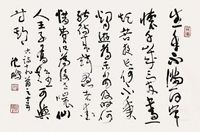 生年不滿百常
懷千歲憂晝短
苦夜長何不秉
燭遊為樂當及
時何能待來茲愚者愛
惜費但為後世嗤仙
人王子喬難可與
等期
沈鵬